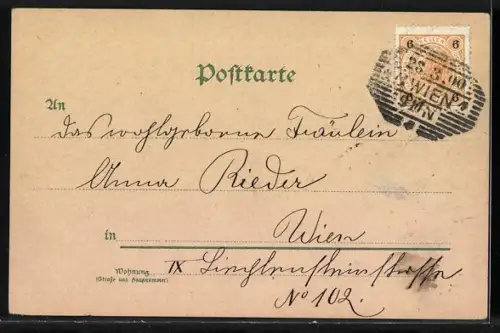 6 6
Postkarte
28.3.00
WIEN
An
Das wohlgeborne Fräulein
Anna Rieder
in Wien
Wohnung
(Straße und Hausnummer)
IX Liechtensteinstrasse
No 102.